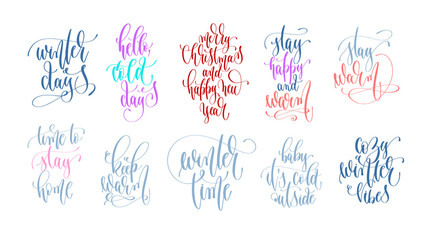 winter
days
hello,
cold
days
merry
Christmas
and
happy new
year
stay
happy
and
warm
stay
warm
time to
stay
home
keep
warm
winter
time
baby
it's cold
outside
cozy
winter
vibes